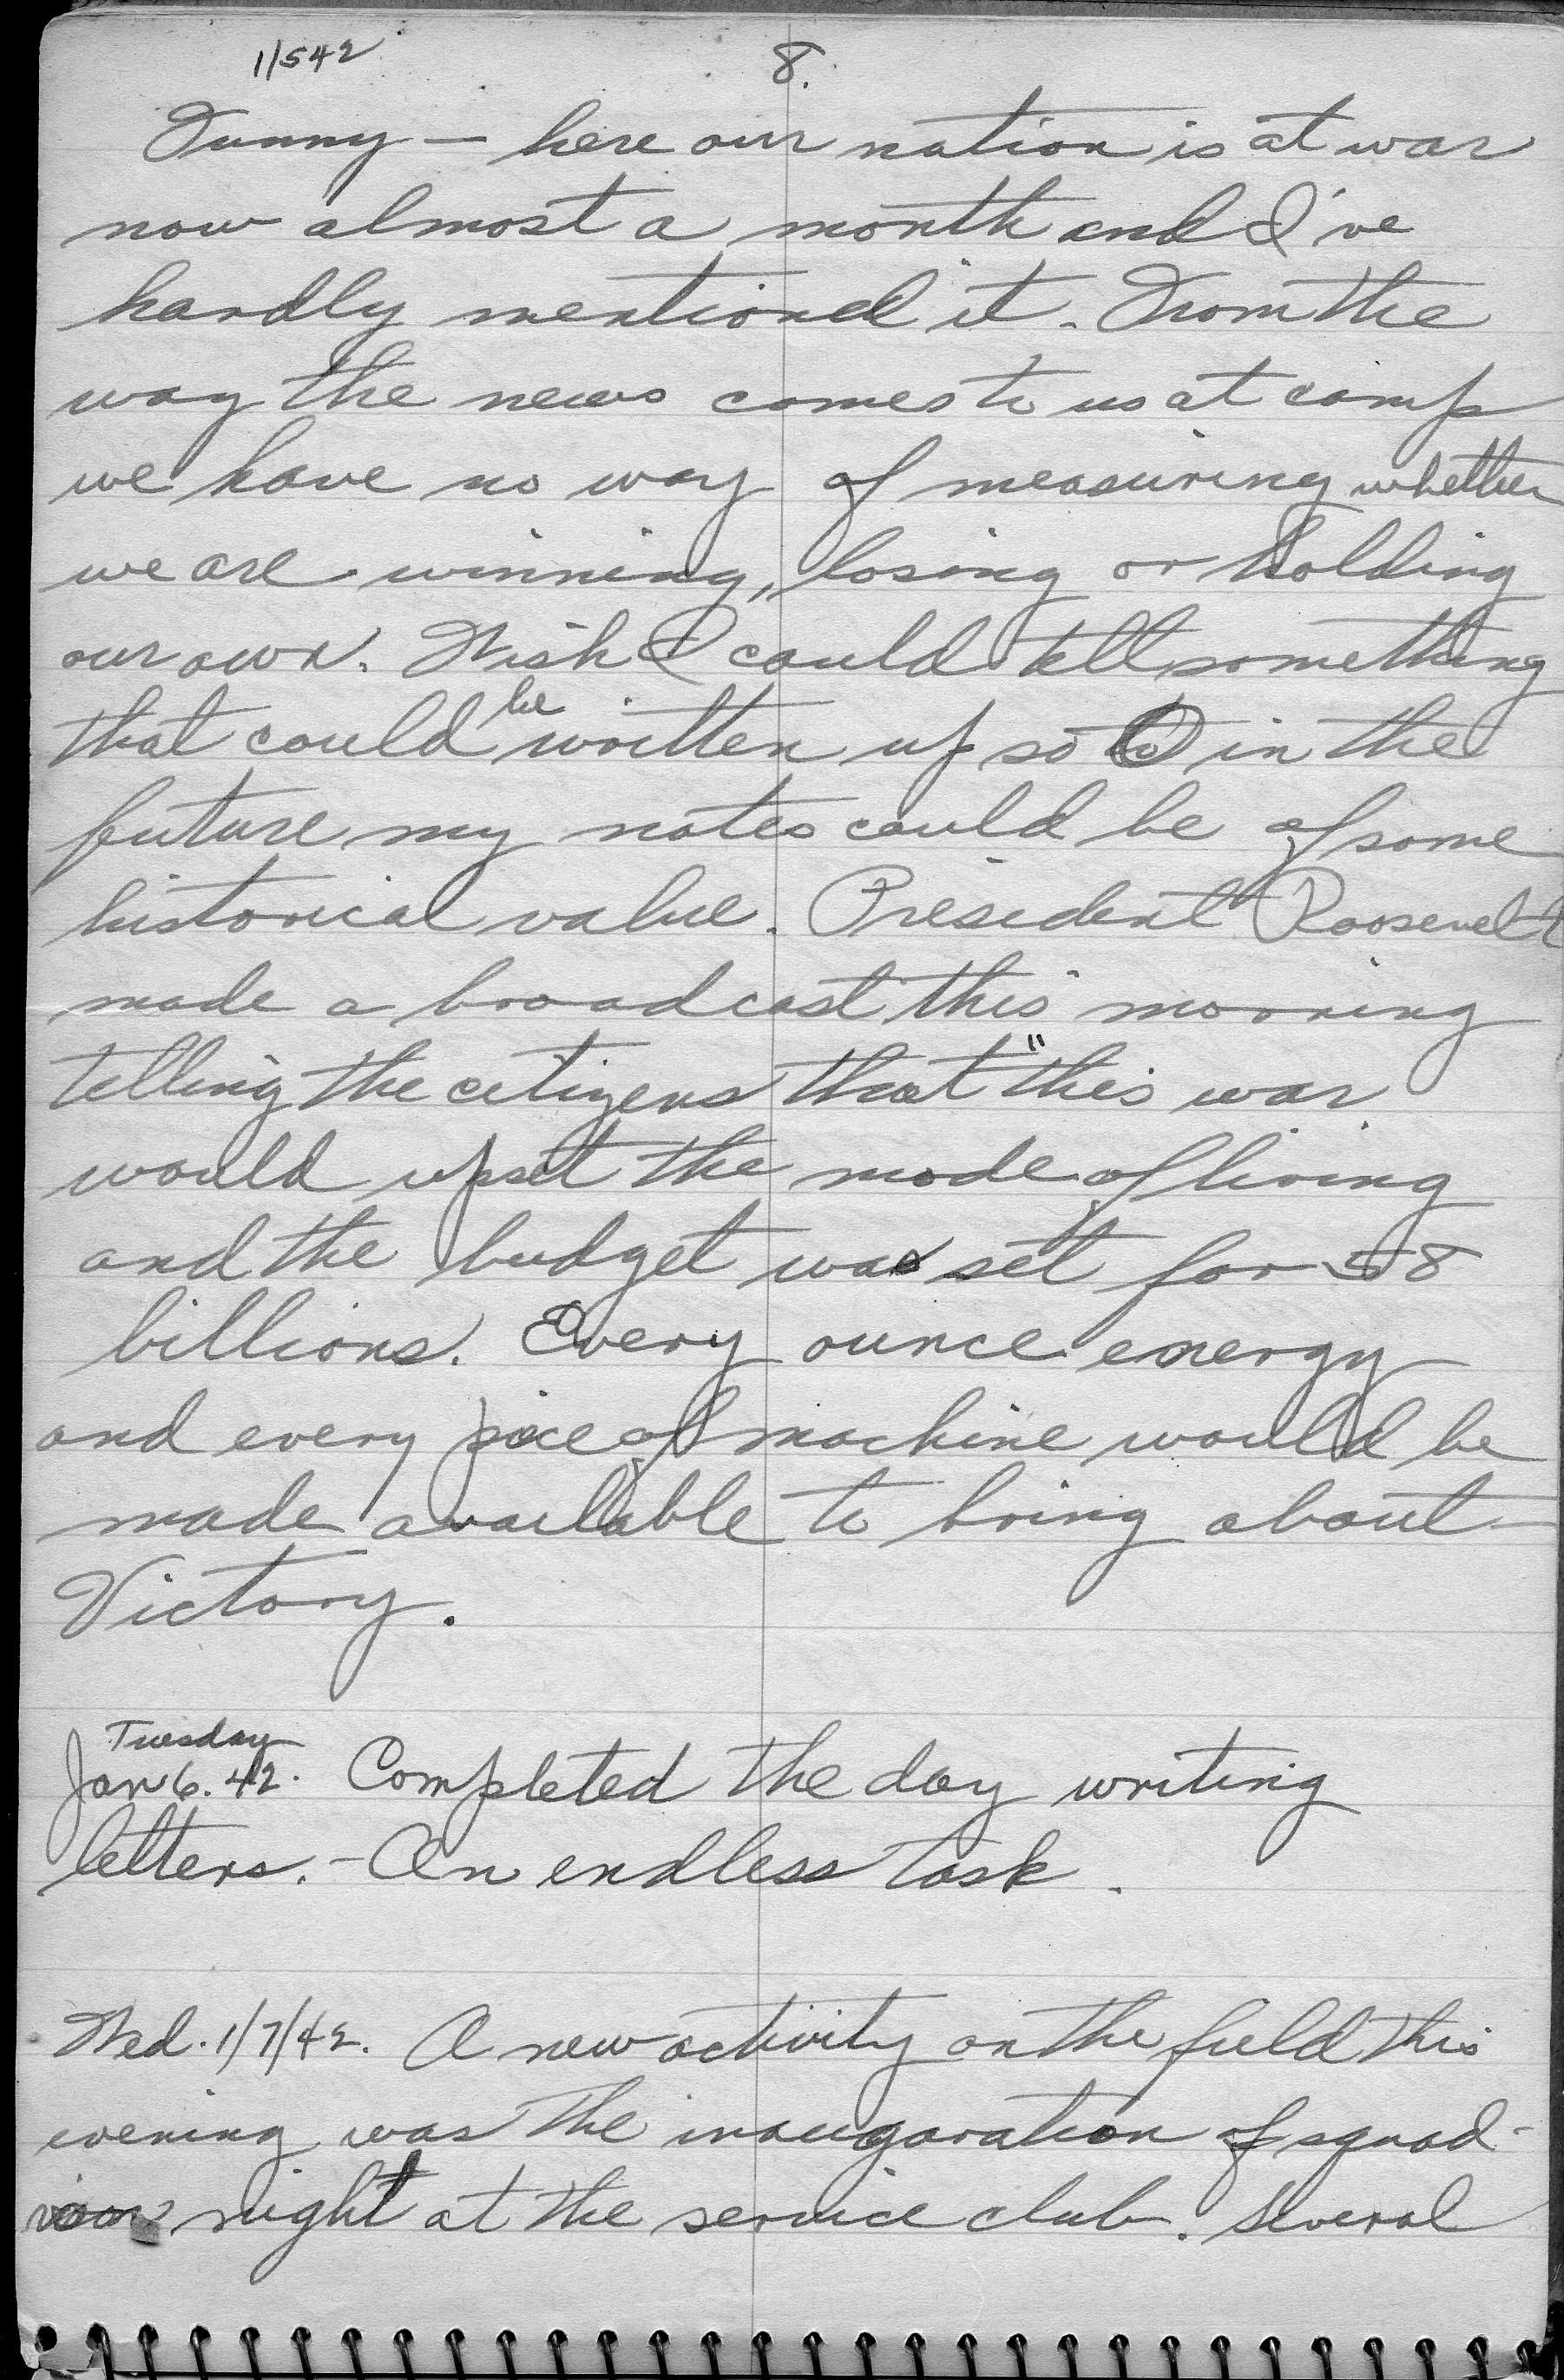 1/542
8.
Funny — here our nation is at war
now almost a month and I've
hardly mentioned it. From the
way the news comes to us at camp
we have no way of measuring whether
we are winning, losing or holding
our own. Wish I could tell something
that could be written up so to in the
future my notes could be of some
historical value. President Roosevelt
made a broadcast this morning
telling the citizens that "this war
would upset the mode of living
and the budget was set for 58
billions. Every ounce energy
and every piece of machine would be
made available to bring about
Victory.
Tuesday
Jan 6. 42. Completed the day writing
letters. - An endless task.
Wed. 1/7/42. A new activity on the field this
evening was the inaugaration of squad-
ron night at the service club. Several